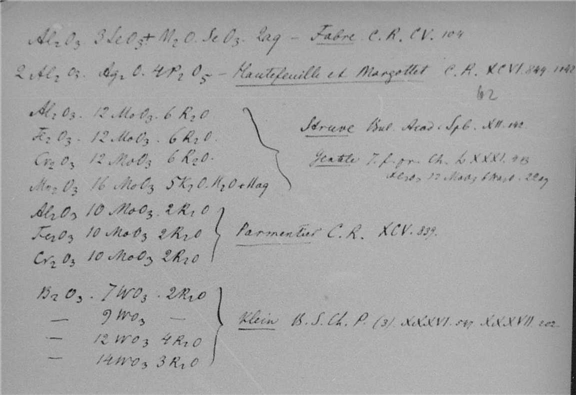 Al2O3 3SeO3 + M2O. SeO3. 2aq — Fabre C. R. CV. 104
2 Al2O3. Ag2O. 4P2O5 — Hautefeuille et Margottet C. R. XCVI. 849. 1142
Al2O3. 12 MoO3. 6 R2O
Fe2O3. 12 MoO3. 6 R2O.
Cr2O3 12 MoO3 6 R2O.
Mn2O3 16 MoO3 5K2O. H2O + Haq
Struve Bul. Acad. Spb. XII.
Gentele J. f. pr. Ch. LXXXI. 413
Al2O3 10 MoO3. 2R2O
Fe2O3 10 MoO3 2R2O
Cr2O3 10 MoO3 2R2O
Parmentier C. R. XCV. 839.
B2O3. 7WO3. 2R2O
— 9WO3 —
— 12 WO3 4R2O
— 14WO3 3R2O
Klein B. S. Ch. P. (3) XXXVI. XXXVII. 202